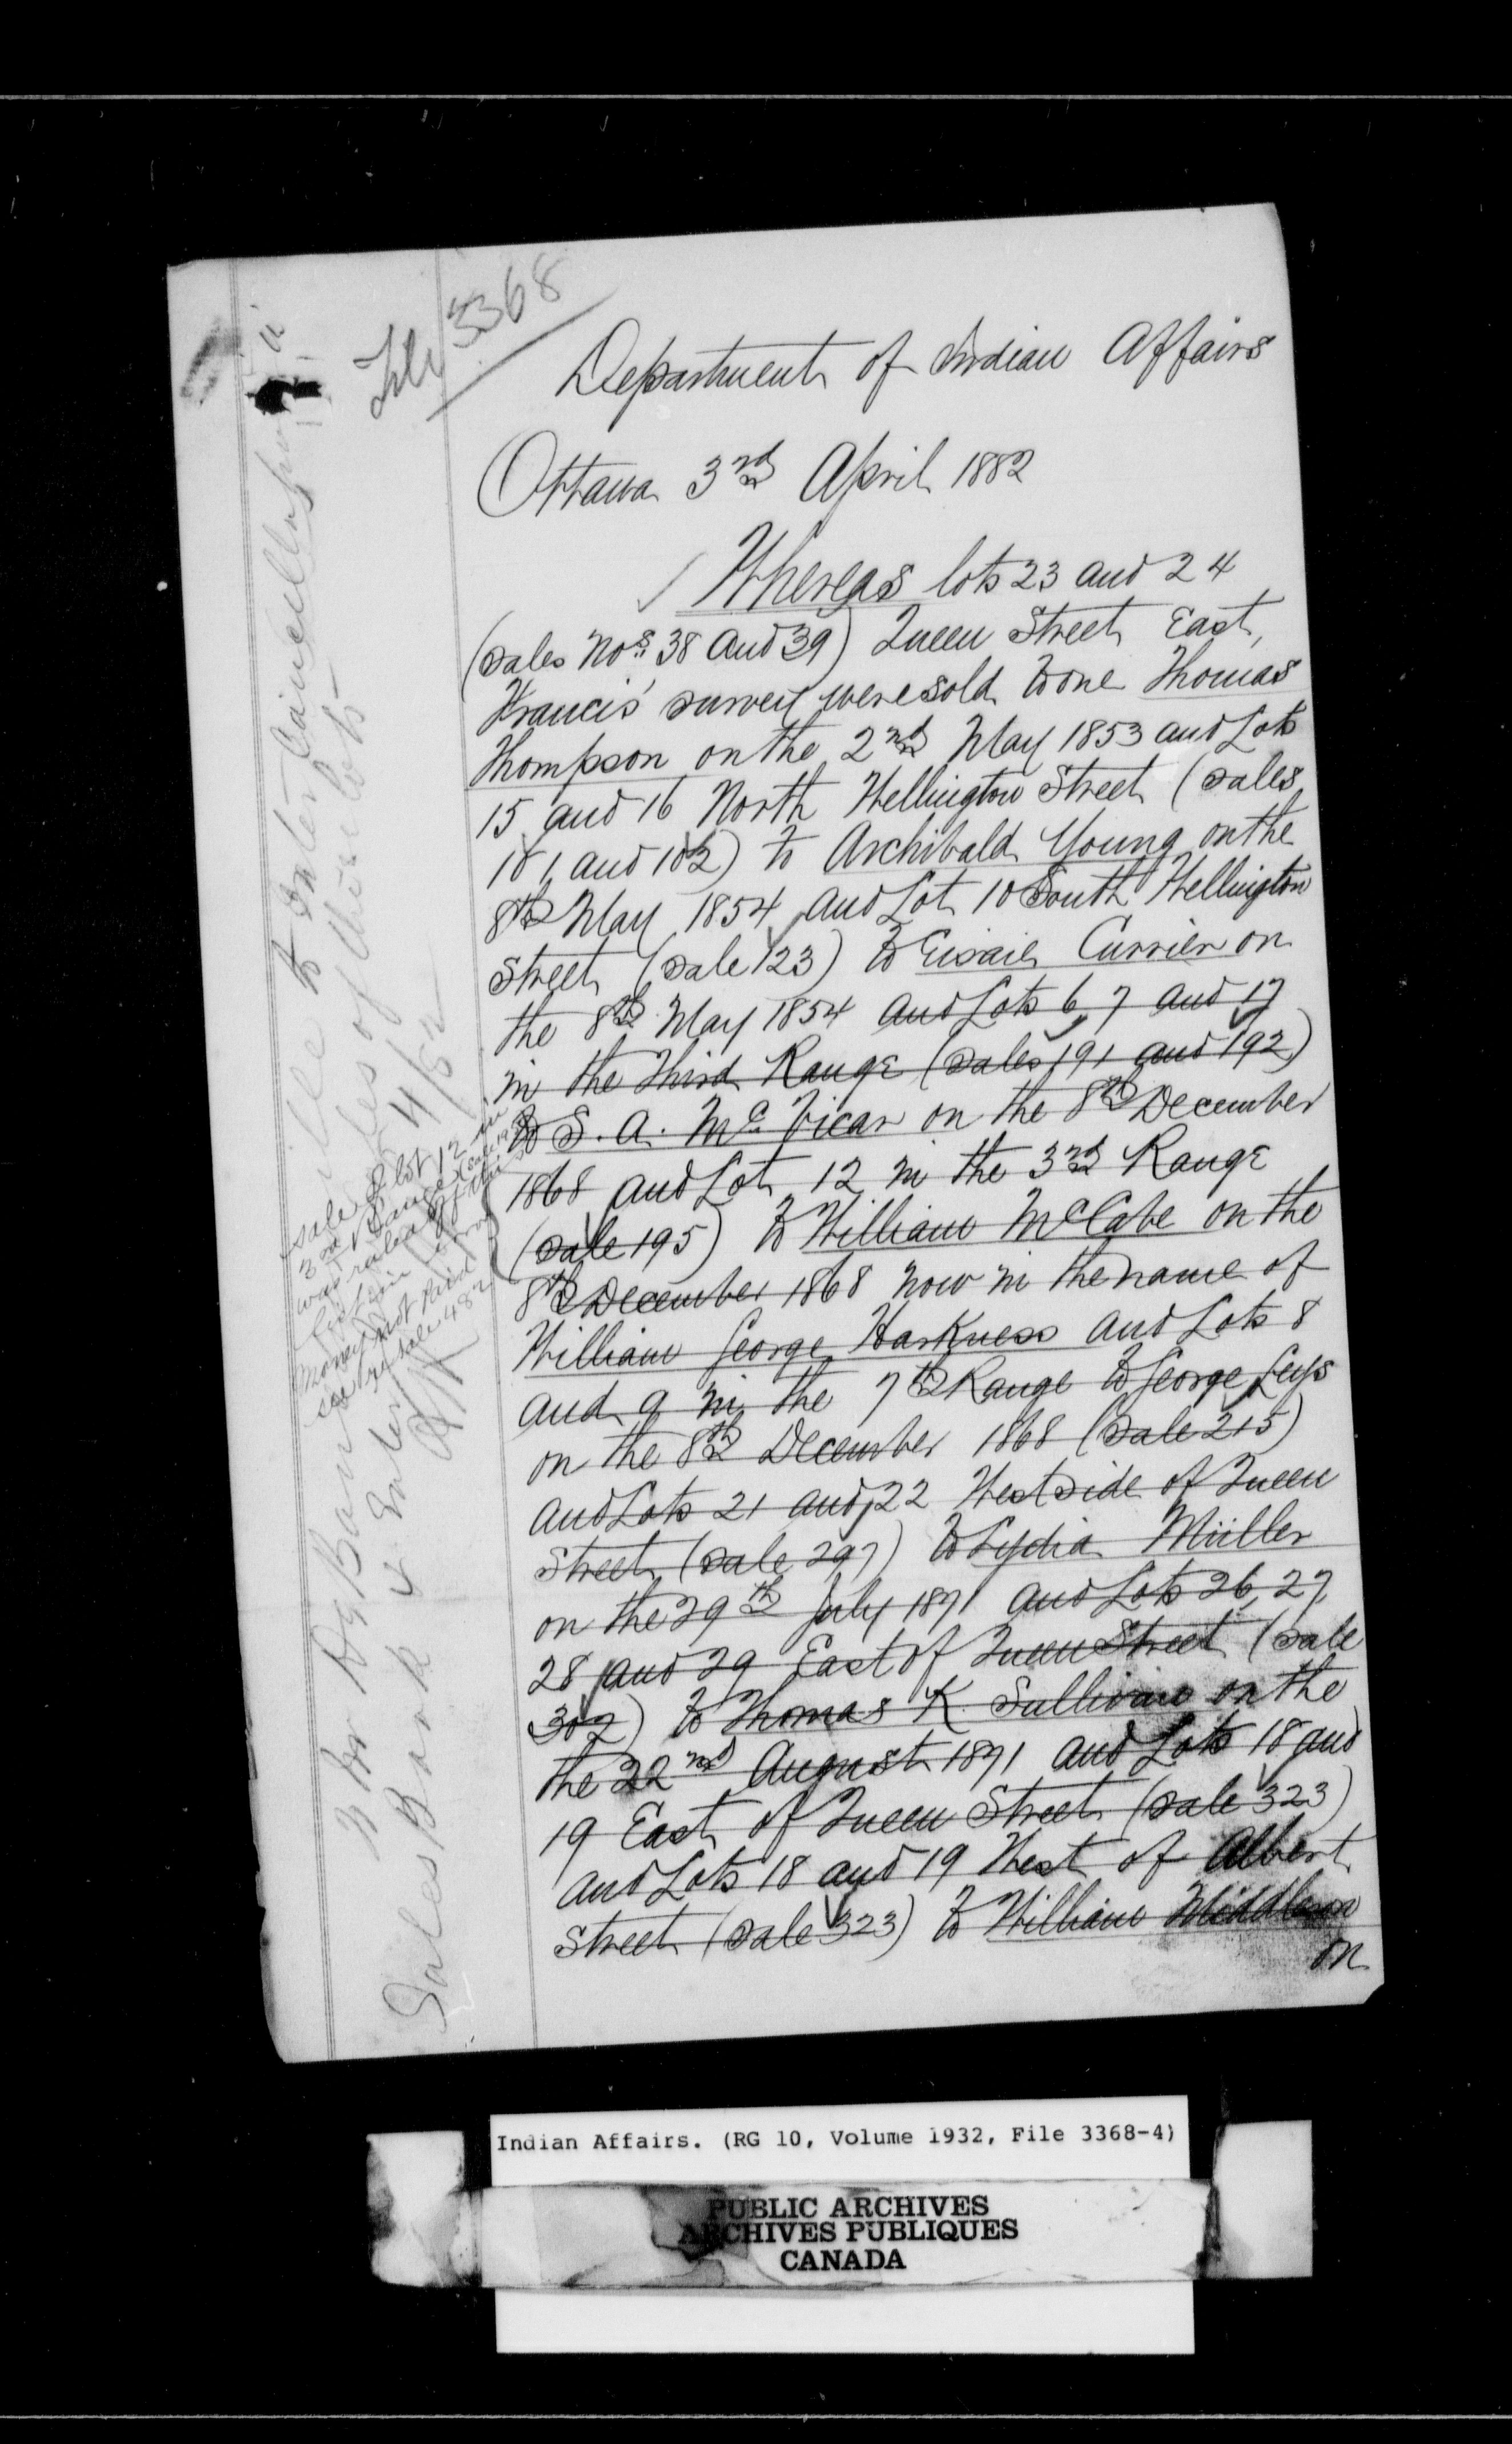 File 3368
Department of Indian Affairs
Ottawa 3rd April 1882
Whereas lots 23 and 24
(Sales Nos. 38 and 39) Queen Street East,
Francis' survey were sold to one Thomas
Thompson on the 2nd May 1853 and Lots
15 and 16 North Wellington Street (Sales
101 and 102) to Archibald Young on the
8th May 1854 and Lot 10 South Wellington
Street (Sale 123) to Currier on
the 8th May 1854 and Lots 6, 7 and 17
in the Third Range (Sales 191 and 192)
to S. A. McVicar on the 8th December
1868 and Lot 12 in the 3rd Range
(Sale 195) to William McCabe on the
8th December 1868 now in the name of
William George Harkness and Lots 8
and 9 in the 7th Range to George Leys
on the 8th December 1868 (Sale 215)
and Lots 21 and 22 West side of Queen
Street (Sale 297) to Lydia Müller
on the 29th July 1871 and Lots 26, 27
28 and 29 East of Queen Street (Sale
302) to Thomas K Sullivan on the
the 22nd August 1871 and Lots 18 and
19 East of Queen Street (Sale 323)
and Lots 18 and 19 West of Albert
Street (Sale 323) to William
on
to Enter Cancellation
Sales of these lots
4/82
Sale of lot 12 in
3rd Range (Sale 195)
was
money not paid
see re sale 482
Sales Book
Indian Affairs. (RG 10, Volume 1932, File 3368-4)
PUBLIC ARCHIVES
ARCHIVES PUBLIQUES
CANADA